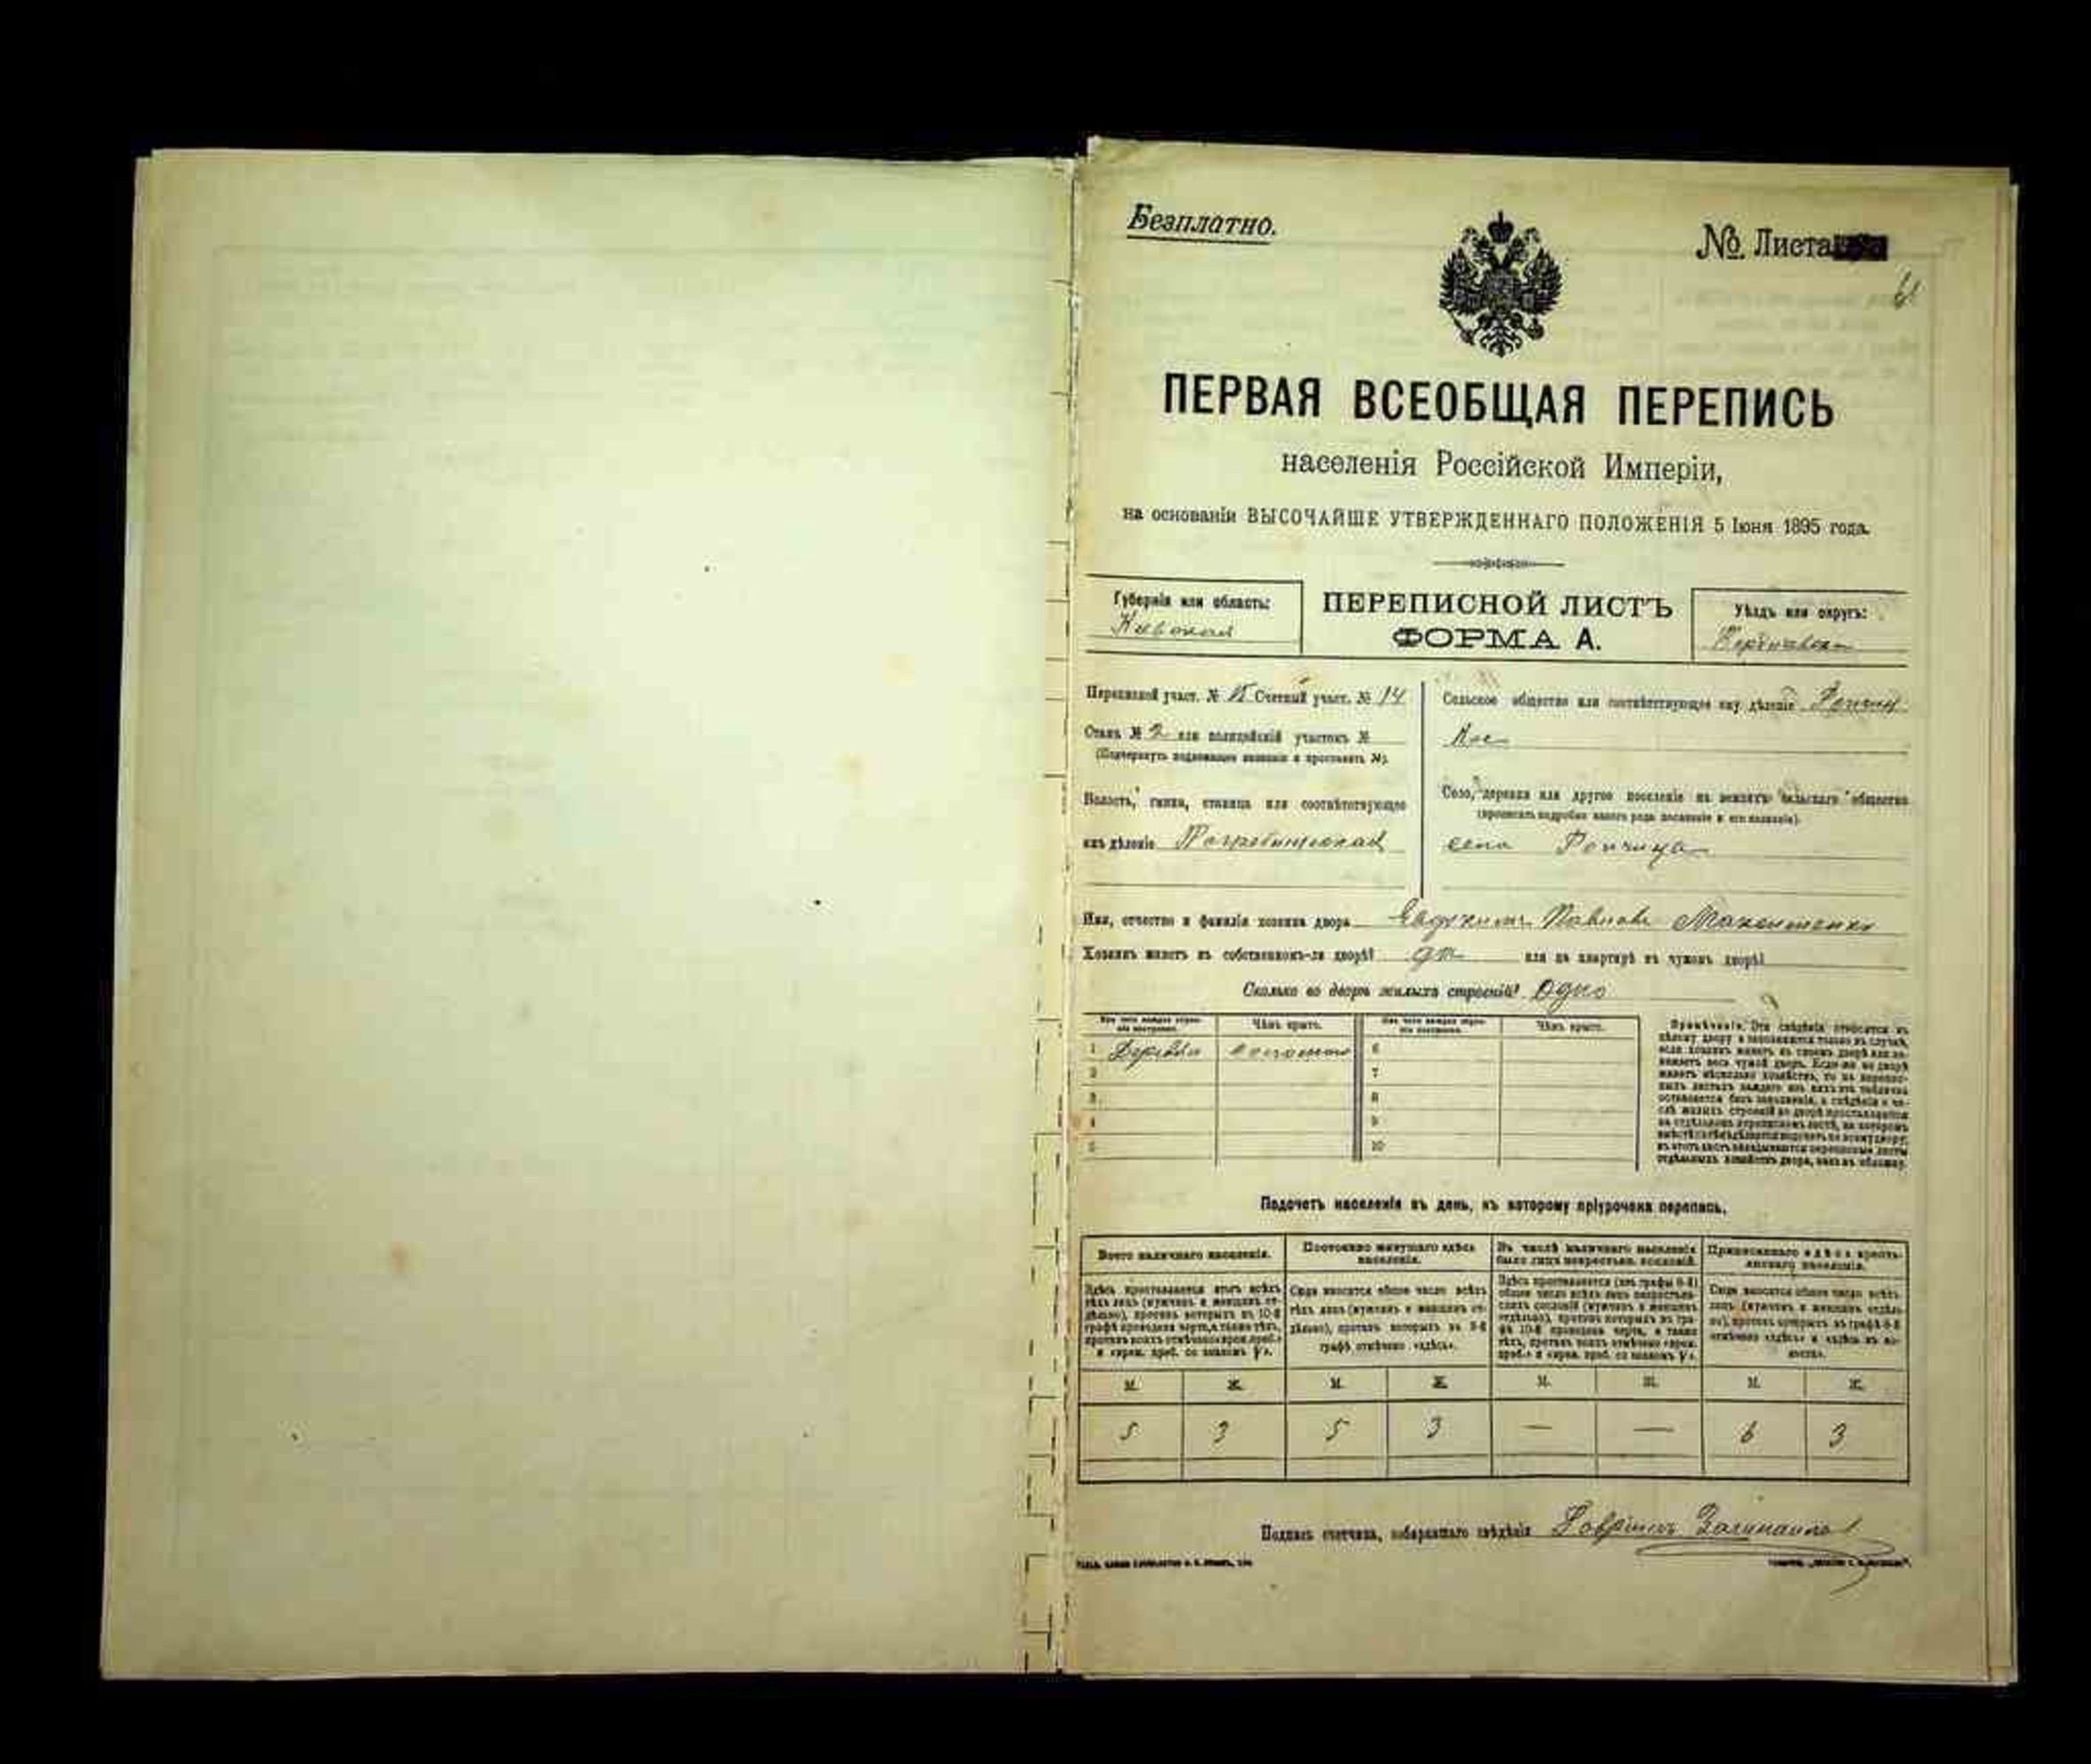 Безплатно.
№ Листа
61
ПЕРВАЯ ВСЕОБЩАЯ ПЕРЕПИСЬ
населенія Россійской Имперіи,
на основаніи ВЫСОЧАЙШЕ УТВЕРЖДЕННАГО ПОЛОЖЕНІЯ 5 Іюня 1895 года.
Губернія или область:
Кіевская
ПЕРЕПИСНОЙ ЛИСТЪ
ФОРМА А.
Уѣздъ или округъ:
Бердичевскій
Переписной участ. № Счетный участ. № 14
Станъ № 2 или полицейскій участокъ №
(Подчеркнуть подлежащее названіе и проставить №).
Волость, гмина, станица или соотвѣтствующее
имъ дѣленіе Погребищская
Сельское общество или соотвѣтствующее ему дѣленіе Ропчиц
кое
Село, деревня или другое поселеніе на земляхъ сельскаго общества
(прописать подробно какого рода поселеніе и его названіе).
село Ропчица
Имя, отчество и фамилія хозяина двора Евдокимъ Павловъ
Хозяинъ живетъ въ собственномъ-ли дворѣ? да или на квартирѣ въ чужомъ дворѣ?
Сколько во дворѣ жилыхъ строеній? Одно
Изъ чего каждое строеніе построено. Чѣмъ крыто. Изъ чего каждое строеніе построено. Чѣмъ крыто.
1 Дерева соломою 6
2 7
3 8
4 9
5 10
Примѣчаніе. Эти свѣдѣнія относятся къ
цѣлому двору и заполняются только въ случаѣ,
если хозяинъ живетъ въ своемъ дворѣ или за-
нимаетъ весь чужой дворъ. Если-же во дворѣ
живетъ нѣсколько хозяйствъ, то на перепис-
ныхъ листахъ каждаго изъ нихъ эта табличка
оставляется безъ заполненія, а свѣдѣнія о чи-
слѣ жилыхъ строеній во дворѣ проставляются
на отдѣльномъ переписномъ листѣ, на которомъ
отдѣльныхъ хозяйствъ двора, какъ въ обложку.
Подсчетъ населенія въ день, къ которому пріурочена перепись.
Всего наличнаго населенія.
Здѣсь проставляется итогъ всѣхъ
тѣхъ лицъ (мужчинъ и женщинъ от-
дѣльно), противъ которыхъ въ 10-й
графѣ проведена черта, а также тѣхъ,
противъ коихъ отмѣчено «врем. преб.»
и «врем. преб. со знакомъ V».
Постоянно живущаго здѣсь
населенія.
Сюда вносится общее число всѣхъ
тѣхъ лицъ (мужчинъ и женщинъ от-
дѣльно), противъ которыхъ въ 9-й
графѣ отмѣчено «здѣсь».
Въ числѣ наличнаго населенія
было лицъ некрестьян. сословій.
Здѣсь проставляется (изъ графы 6-й)
общее число всѣхъ лицъ некрестьян-
скихъ сословій (мужчинъ и женщинъ
отдѣльно), противъ которыхъ въ гра-
фѣ 10-й проведена черта, а также
тѣхъ, противъ коихъ отмѣчено «врем.
преб.» и «врем. преб. со знакомъ V».
Приписаннаго здѣсь кресть-
янскаго населенія.
Сюда вносится общее число всѣхъ
лицъ (мужчинъ и женщинъ отдѣль-
но), противъ которыхъ въ графѣ 8-й
отмѣчено «здѣсь» и «здѣсь въ во-
лости».
М. Ж. М. Ж. М. Ж. М. Ж.
5 3 5 3 — — 6 3
Подпись счетчика, собиравшаго свѣдѣнія